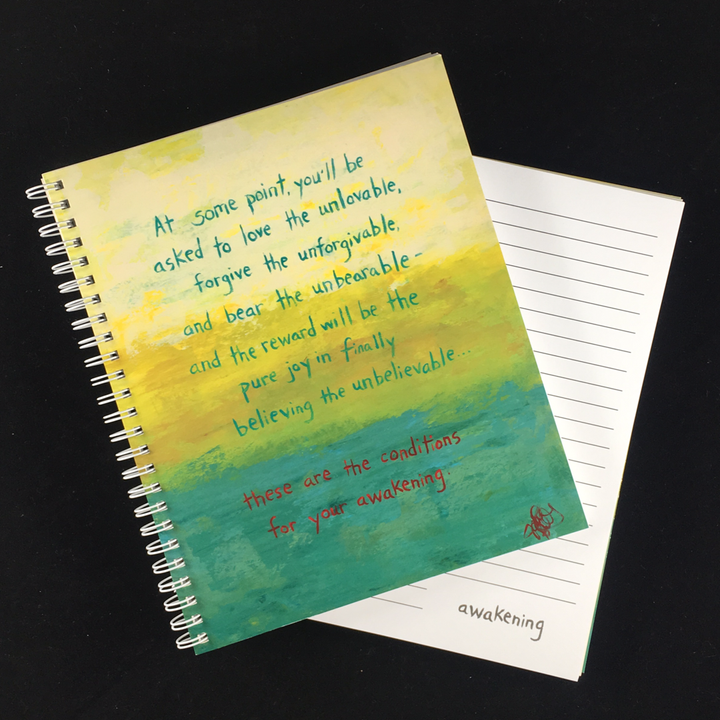 At some point, you'll be
asked to love the unlovable,
forgive the unforgivable,
and bear the unbearable -
and the reward will be the
pure joy in finally
believing the unbelievable...
these are the conditions
for your awakening.
awakening